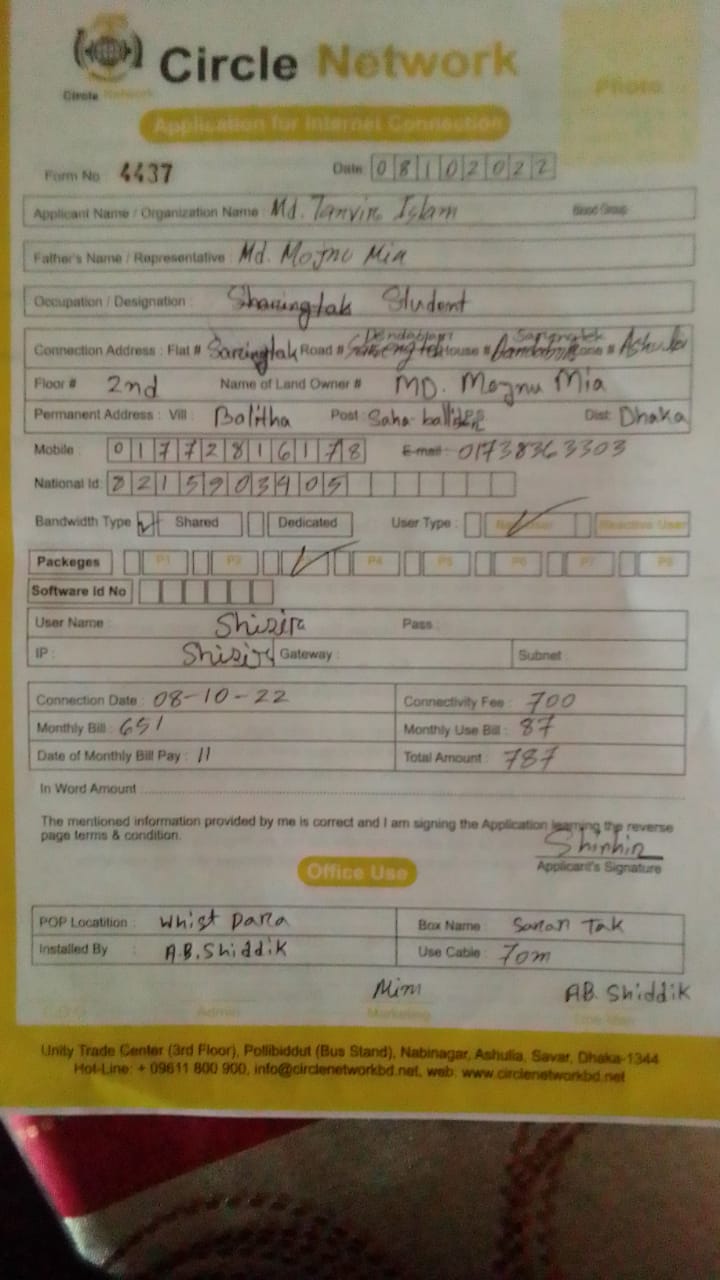 Circle Network
Circle Network
Photo
Application for Internet Connection
Form No 4437 Date: 08102022
Applicant Name / Organization Name : Md. Tanvir Islam Blood Group
Father's Name / Representative : Md. Mojnu Mia
Occupation / Designation : Student
Connection Address : Flat # Road # House # Zone #
Floor # 2nd Name of Land Owner # MD. Mojnu Mia
Permanent Address : Vill : Balitha Post : Dist: Dhaka
Mobile : 01772816178 E-mail : 01738363303
National Id: 8215903405
Bandwidth Type Shared Dedicated User Type : New User Reactive User
Packeges P1 P2 P4 P5 P6 P7 P8
Software Id No
User Name : Shisir Pass :
IP : Shisir Gateway : Subnet :
Connection Date : 08-10-22 Connectivity Fee : 700
Monthly Bill : 651 Monthly Use Bill : 87
Date of Monthly Bill Pay : 11 Total Amount : 787
In Word Amount
The mentioned information provided by me is correct and I am signing the Application learning the reverse
page terms & condition.
Applicant's Signature
Office Use
POP Locatition : Whist Para Box Name : Saran Tak
Installed By : A.B. Shiddik Use Cable : 70m
Mim AB. Shiddik
Admin Marketing
Unity Trade Center (3rd Floor), Pollibiddut (Bus Stand), Nabinagar, Ashulia, Savar, Dhaka-1344
Hot-Line: + 09611 800 900, info@circlenetworkbd.net, web: www.circlenetworkbd.net